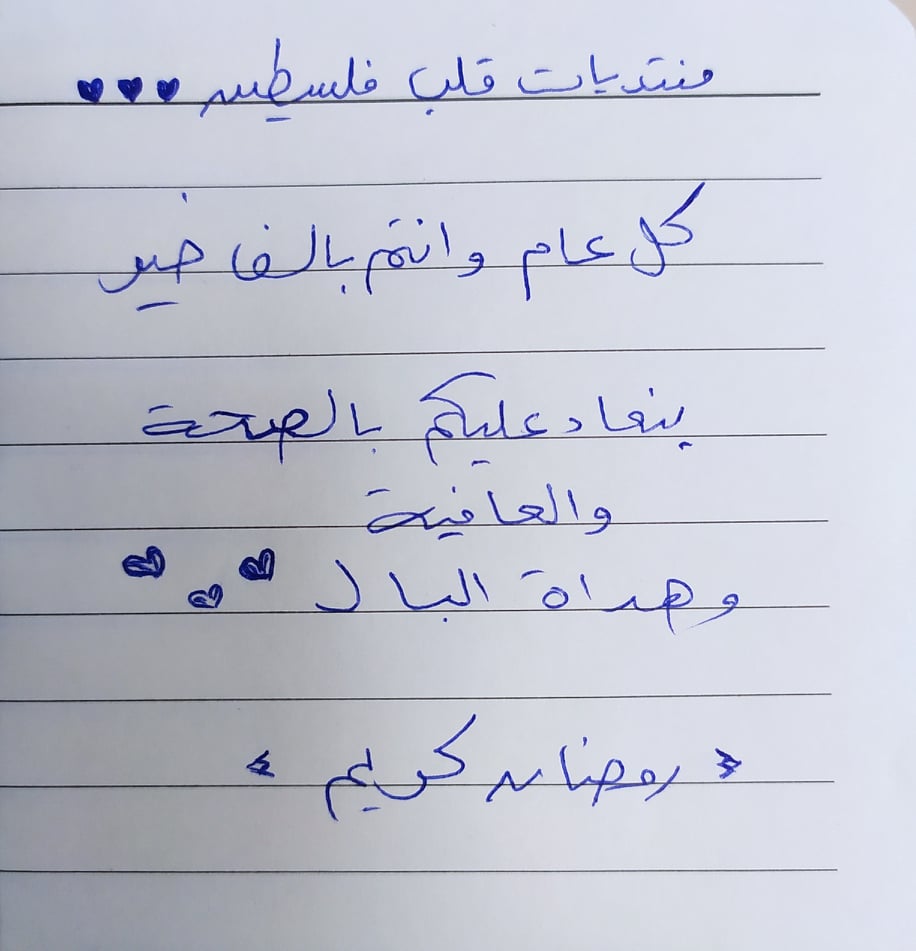 منتديات قلب فلسطين ♥♥♥
كل عام وانتم بالف خير
ينعاد عليكم بالصحة
والعافية
وهداة البال ♥♥♥
رمضان كريم